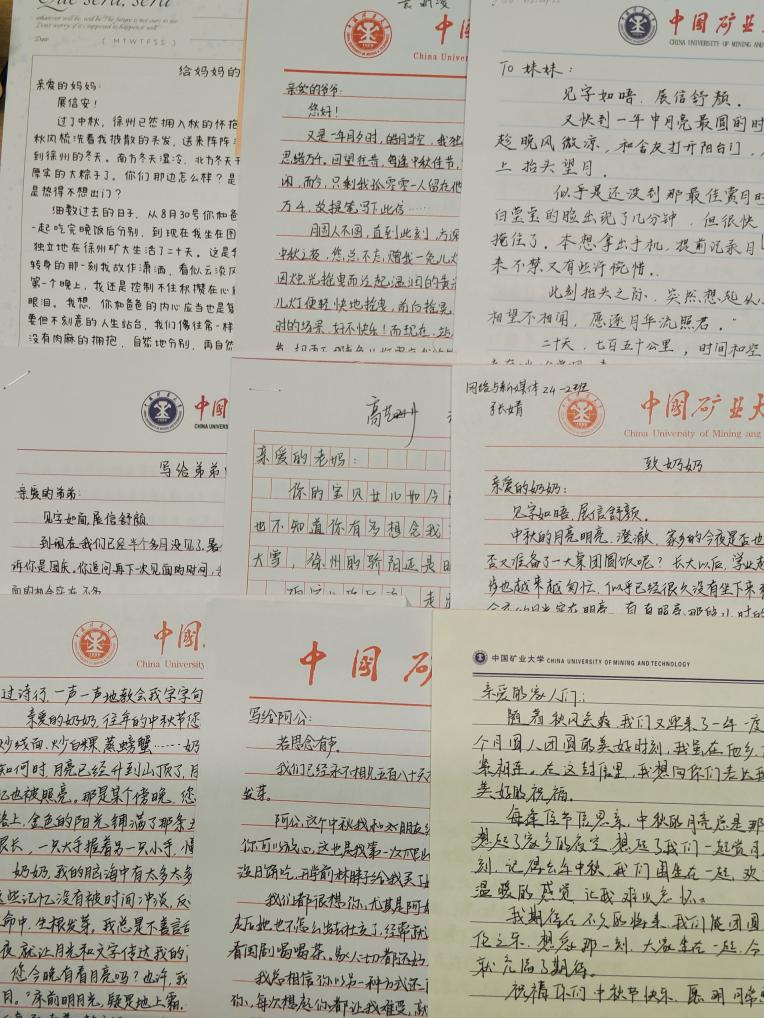 Que será, será
whatever will be will be The future is not ours to see
Don't worry if it's supposed to happen, it will
Date
( M T W T F S S )
给妈妈的
亲爱的妈妈:
展信安!
过了中秋,徐州已然拥入秋的怀抱
秋风梳洗着我披散的头发,送来阵阵
到徐州的冬天。南方冬天湿冷,北方冬天干
厚实的大粽子了。你们那边怎么样?是
是热得不想出门?
细数过去的日子,从8月30号你和爸
一起吃完晚饭后分别,到现在我坐在图
独立地在徐州矿大生活了二十天。这是
转身的那一刻我故作潇洒,看似云淡风
第一个晚上,我还是控制不住积攒在心
眼泪。我想,你和爸爸的内心应当也是
要但不刻意的人生站台,我们像往常一样
没有肉麻的拥抱,自然地分别,再自然
中国
China Univers
亲爱的爷爷:
您好!
又是一年月夕时,皓月当空,我独
思绪万千。回望往昔,每逢中秋佳节,
闲,而今,只剩我孤零零一人留在他
万千,故提笔写下此信……
月圆人不圆,直到此刻,方深
中秋之夜,您总不忘赠我一兔儿灯
因烛光摇曳而泛起温润的黄
儿灯便轻快地摇曳,前向摇晃
时的场景,好不快乐!而现在,站
中国矿业
CHINA UNIVERSITY OF MINING AND
TO 妹妹:
见字如晤,展信舒颜。
又快到一年中月亮最圆的时
趁晚风微凉,和舍友打开阳台门,
上抬头望月。
似乎是还没到那最佳赏月时
白莹莹的脸出现了几分钟,但很快
掩住了。本想拿出手机,提前记录月
来不禁又有些许惋惜。
此刻抬头之际,突然想起从
相望不相闻,愿逐月华流照君。"
二十天,七百五十公里,时间和空
中国
CHINA UNIVERS
写给弟弟
亲爱的弟弟:
见字如面,展信舒颜
到现在我们已经半个多月没见了,暑
诉你是国庆,你追问再下一次见面的时间,
亲爱的老妈:
你的宝贝女儿如今
也不知道你有多想念我
大雪,徐州的骄阳还是
网络与新媒体24-2班
张婧
中国矿业大
China University of Mining and
致奶奶
亲爱的奶奶:
见字如晤,展信舒颜。
中秋的月亮明亮,澄澈,家乡的今夜是否也
否又准备了一大桌团圆饭呢?长大以后,学业
步也越来越匆忙,似乎已经很久没有坐下来
中国
China University
过诗行,一声一声地教会我字字句
亲爱的奶奶,往年的中秋节您
炒线面、炒白粿、蒸螃蟹……奶
如何时,月亮已经升到山顶了,月
忆也被照亮。那是某个傍晚,您
路上,金色的阳光铺满了那条
很长,一只大手握着另一只小手,慢
奶奶,我的脑海中有太多太多
这些记忆没有被时间冲淡,反
命中,生根发芽。我总是不善言
夜就让月光和文字传达我的
您今晚有看月亮吗?也许,我
月。"床前明月光,疑是地上霜。
中国矿
写给阿公:
若思念有声。
我们已经永不相见五百八十天
发芽。
阿公,这个中秋我和对朋友
你可以放心,这也是我第一次不
没日饼吃,开学前林胖子给我买了
我们都很想你,尤其是阿
走后她也不怎么出去社交了,经常
看国剧喝喝茶。家人一切都还好
我总相信你以另一种方式还
你,每次想起你都让我难受,
中国矿业大学 CHINA UNIVERSITY OF MINING AND TECHNOLOGY
亲爱的家人们:
随着秋风送爽,我们又迎来了一年一度
个月圆人团圆的美好时刻,我虽在他乡,
紧相连。在这封信里,我想向你们送上我
美好的祝福。
每逢佳节倍思亲,中秋的月亮总是那
想起了家乡的夜空,想起了我们一起赏月
刻,记得去年中秋,我们围坐在一起,欢
温暖的感觉让我难以忘怀。
我期待在不久的将来,我们能团圆
伦之乐,想象那一刻,大家坐在一起,今
就充满了期待。
祝福你们中秋节快乐,愿明月常